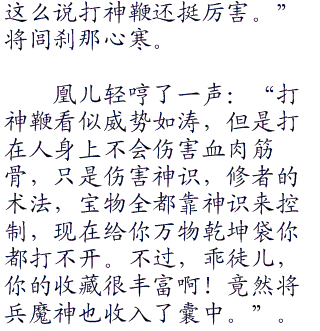 这么说打神鞭还挺厉害。”
将闾刹那心寒。
凰儿轻哼了一声：“打
神鞭看似威势如涛，但是打
在人身上不会伤害血肉筋
骨，只是伤害神识，修者的
术法，宝物全都靠神识来控
制，现在给你万物乾坤袋你
都打不开。不过，乖徒儿，
你的收藏很丰富啊！竟然将
兵魔神也收入了囊中。”。